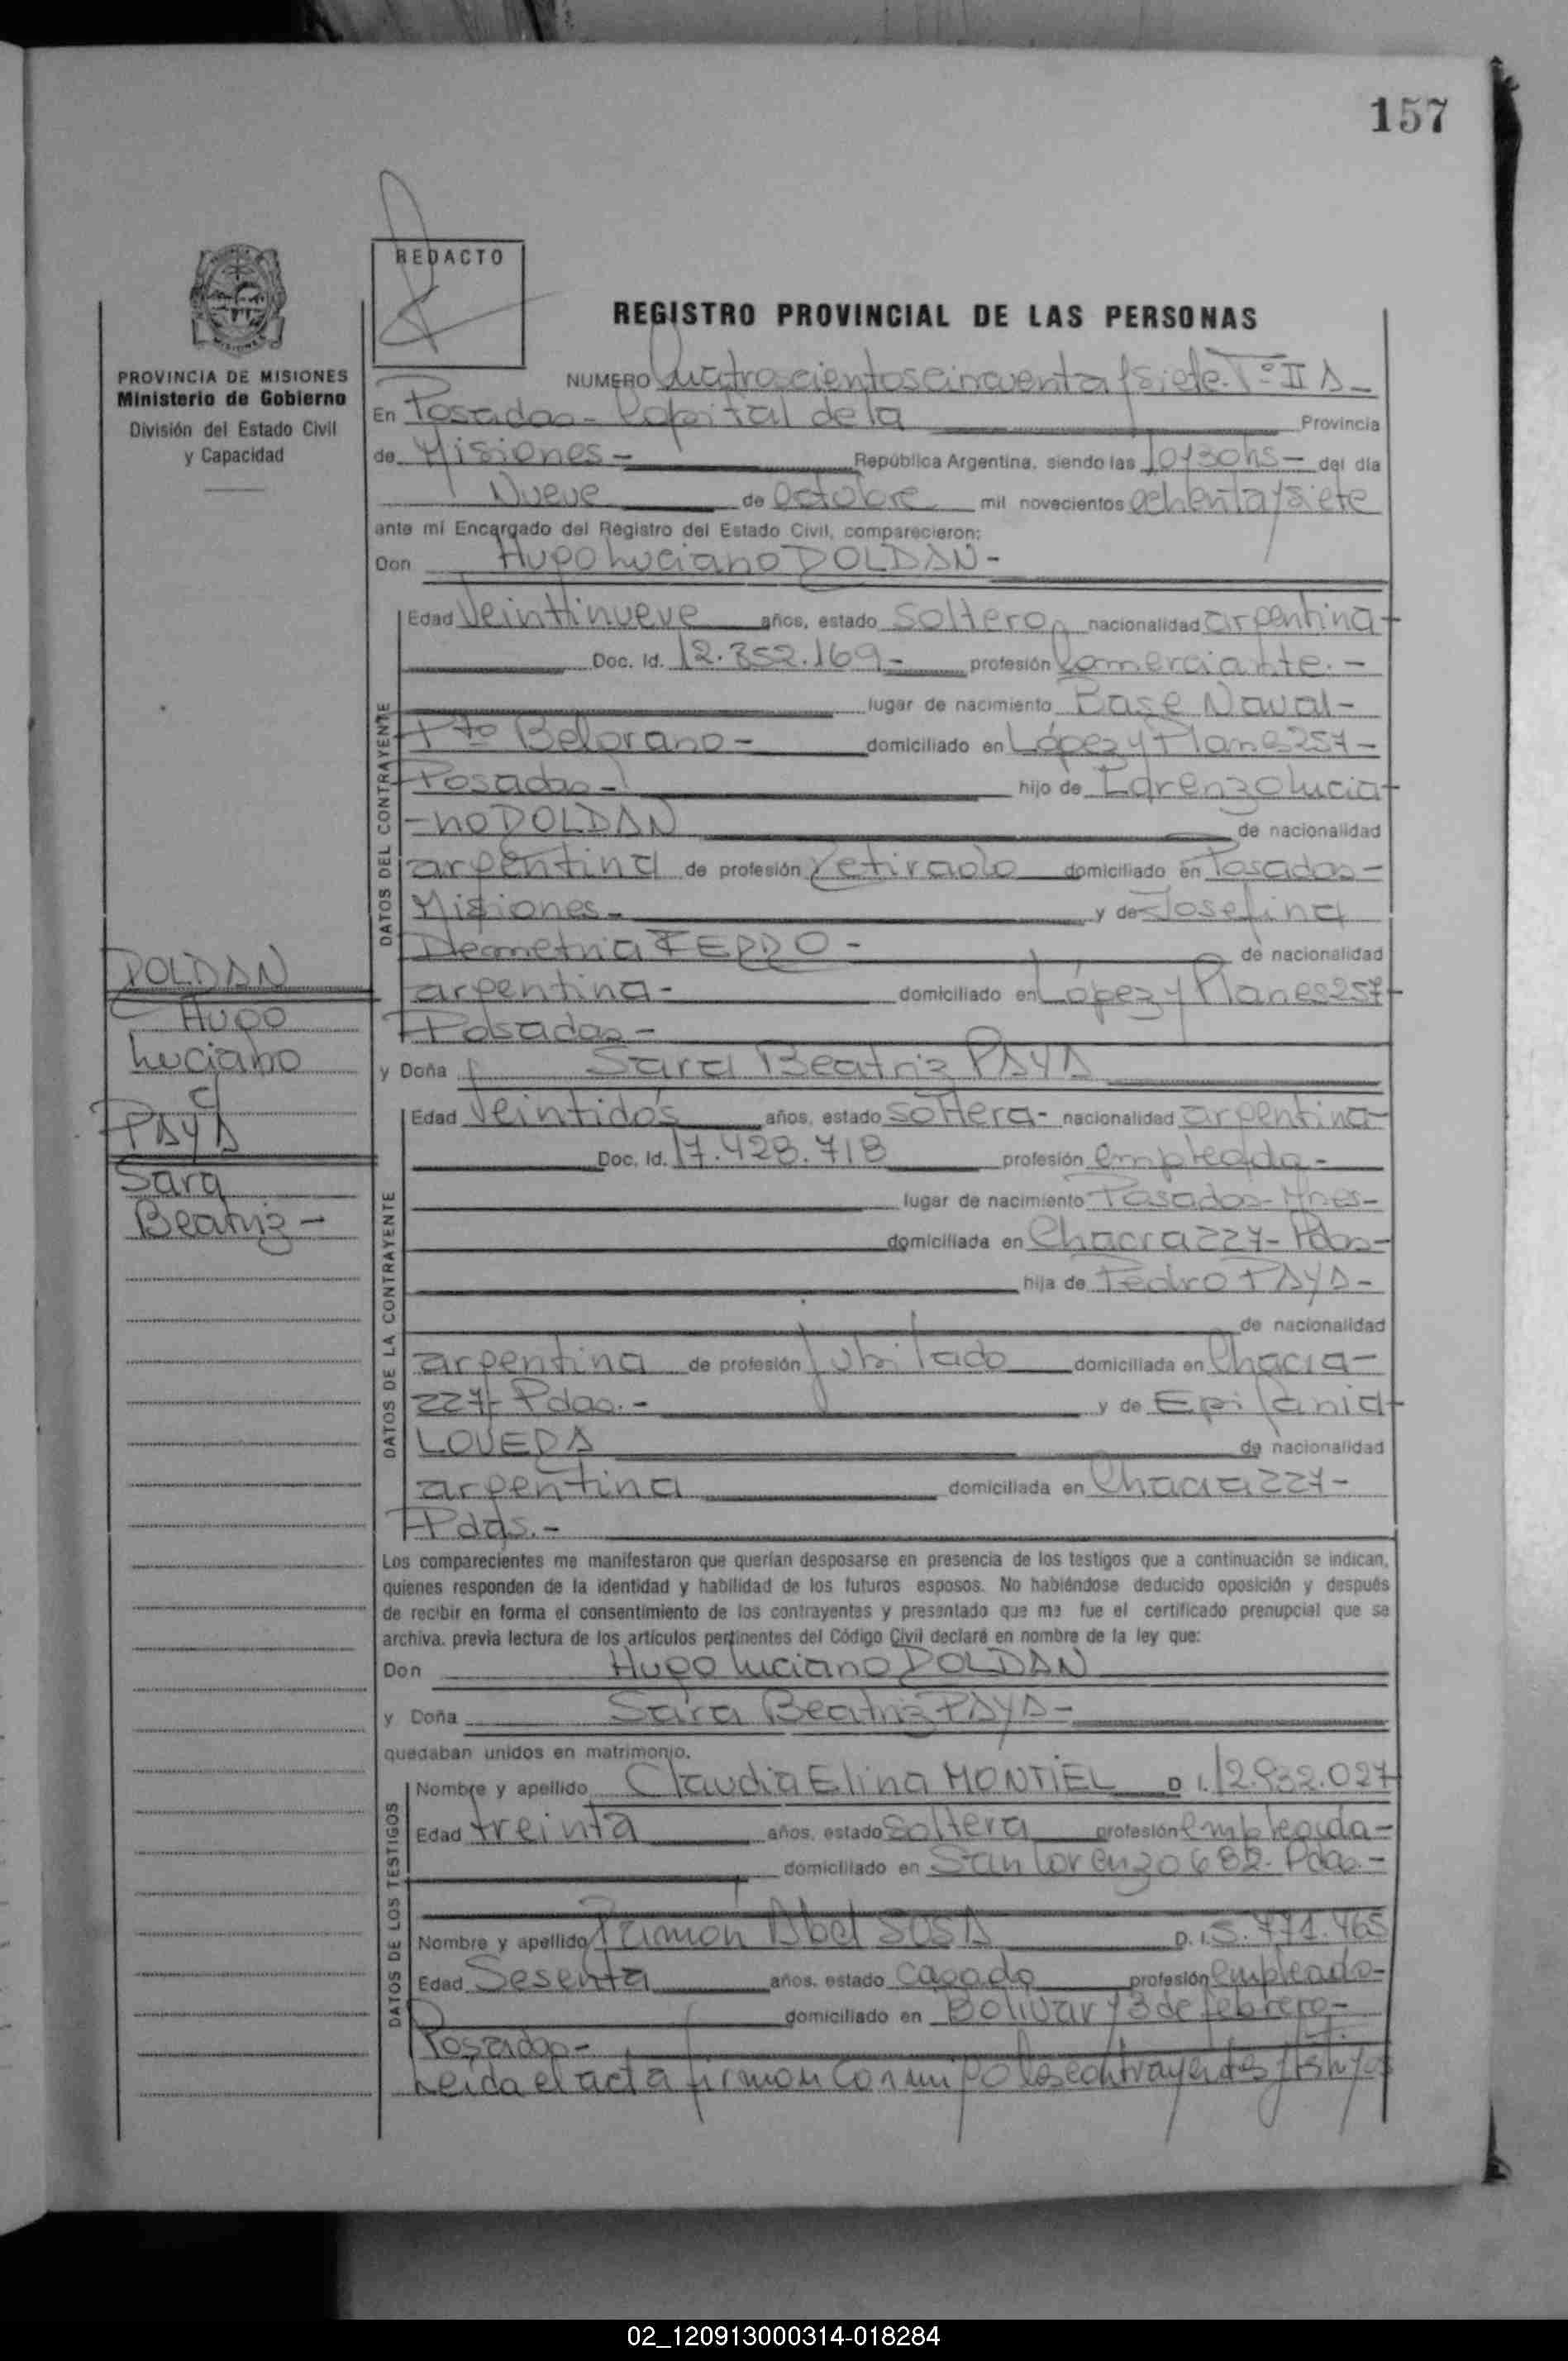 157
REDACTO
REGISTRO PROVINCIAL DE LAS PERSONAS
PROVINCIA DE MISIONES
Ministerio de Gobierno
División del Estado Civil
y Capacidad
NUMERO Cuatrocientos cincuenta y siete. Tº II A-
En Posadas - Capital de la Provincia
de Misiones - República Argentina, siendo las 10/30 hs - del día
Nueve de Octubre mil novecientos ochenta y siete
ante mí Encargado del Registro del Estado Civil, comparecieron:
Don Hugo Luciano DOLDAN -
DATOS DEL CONTRAYENTE
Edad Veintinueve años, estado soltero nacionalidad argentina
Doc. Id. 12.852.169 - profesión Comerciante. -
lugar de nacimiento Base Naval -
Pto Belgrano - domiciliado en López y Planes 257 -
Posadas - hijo de Lorenzo Lucia
-no DOLDAN de nacionalidad
argentina de profesión retirado domiciliado en Posadas -
Misiones - y de Josefina
Deometria FERRO - de nacionalidad
argentina - domiciliado en López y Planes 257
Posadas -
DOLDAN
Hugo
Luciano
c/
PAYA
Sara
Beatriz -
y Doña Sara Beatriz PAYA
DATOS DE LA CONTRAYENTE
Edad Veintidós años, estado soltera - nacionalidad argentina
Doc. Id. 17.428.718 profesión empleada -
lugar de nacimiento Posadas - Mnes -
domiciliada en Chacra 227 - Pdas -
hija de Pedro PAYA -
de nacionalidad
argentina de profesión jubilado domiciliada en Chacra -
227 - Pdas. - y de Epifania
LOVERA de nacionalidad
argentina domiciliada en Chacra 227 -
Pdas. -
Los comparecientes me manifestaron que querían desposarse en presencia de los testigos que a continuación se indican,
quienes responden de la identidad y habilidad de los futuros esposos. No habiéndose deducido oposición y después
de recibir en forma el consentimiento de los contrayentes y presentado que me fue el certificado prenupcial que se
archiva, previa lectura de los artículos pertinentes del Código Civil declaré en nombre de la ley que:
Don Hugo Luciano DOLDAN
y Doña Sara Beatriz PAYA -
quedaban unidos en matrimonio.
DATOS DE LOS TESTIGOS
Nombre y apellido Claudia Elina MONTIEL D I. 12.932.027
Edad treinta años, estado soltera profesión empleada -
domiciliado en San Lorenzo 682 - Pdas. -
Nombre y apellido Ramón Abel SOSA D. I. 5.771.465
Edad Sesenta años, estado casado profesión empleado -
domiciliado en Bolivar y 3 de febrero -
Posadas -
Leida el acta firman con migo los contrayentes y testigos
02_120913000314-018284